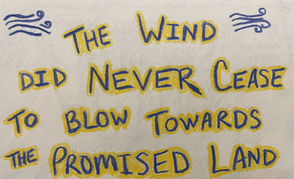 The Wind
did Never Cease
to blow Towards
the Promised Land